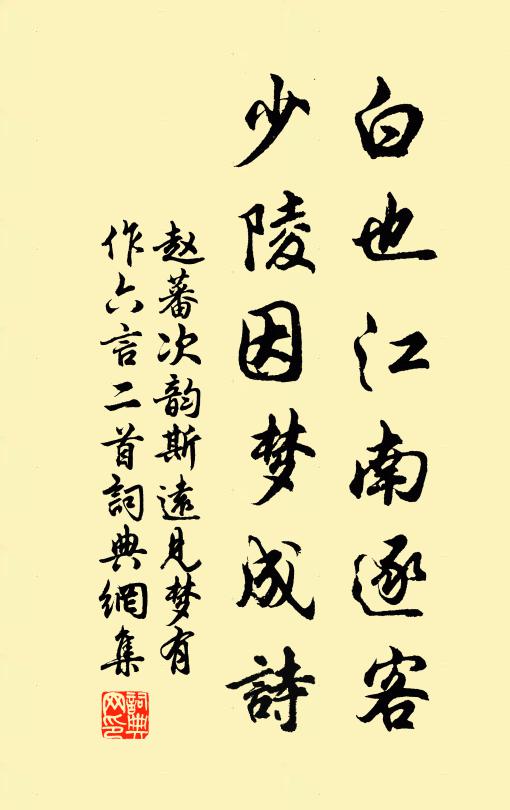 白也江南逐客
少陵因梦成詩
赵蕃次韵斯遠见梦有
作六言二首詞典網集
詞典网印